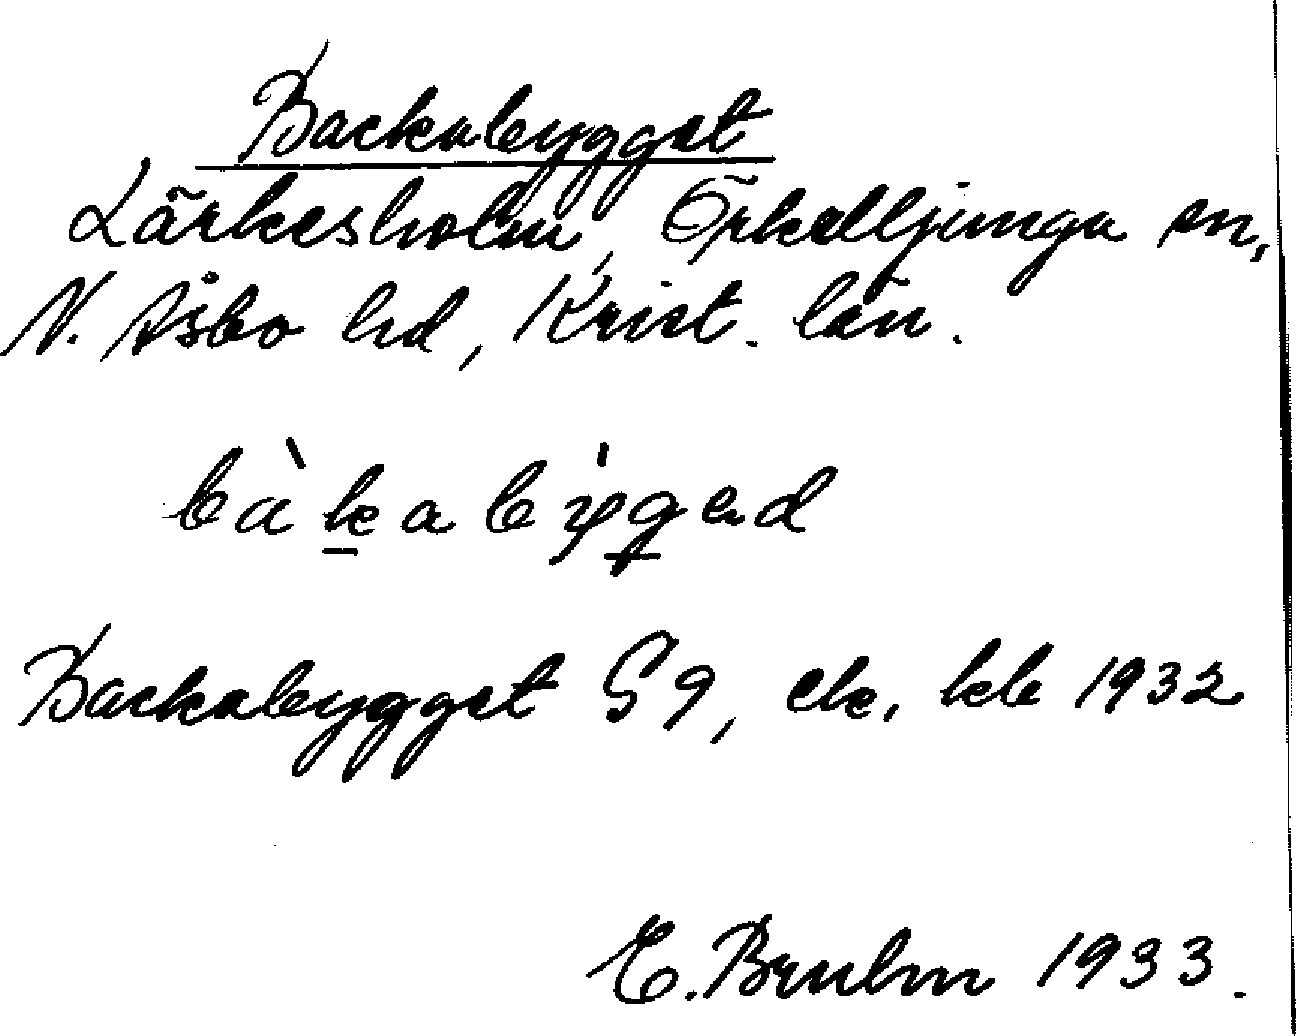 Backabygget
Lärkesholm, Örkelljunga sn,
N. Åsbo hd, Krist. län.
bàkabýgad
Backabygget S9, ek, kb 1932
E. Bruhn 1933.